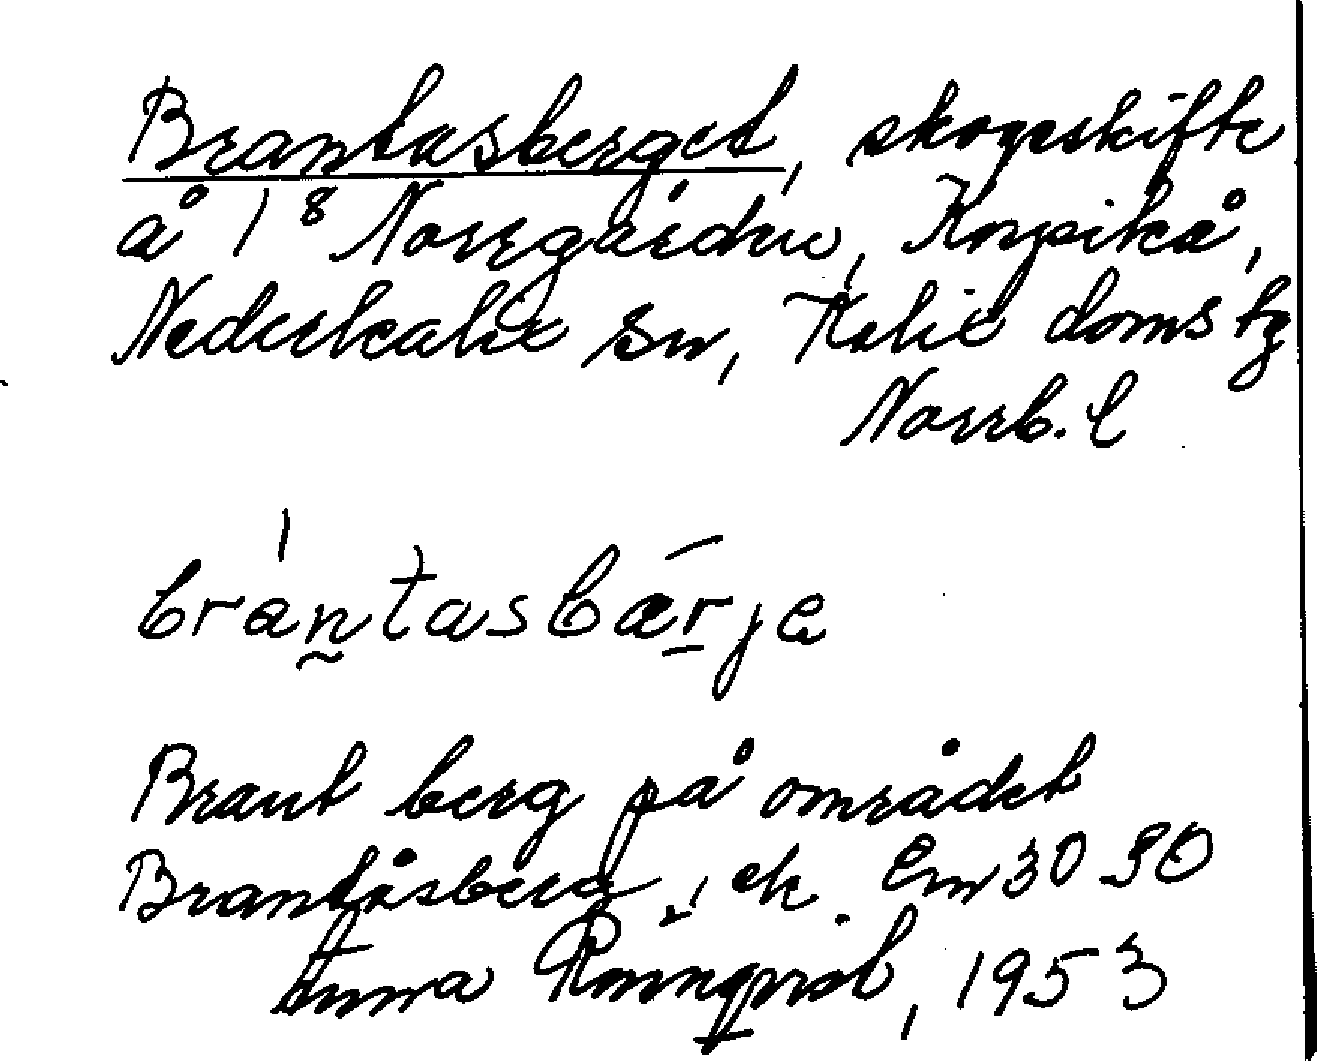 Brantasberget, skogsskifte
å 1⁸ Norrgården, Korpikå,
Nederkalix sn, Kalix doms tg
Norrb. l
brantasbærje
Brant berg på området
Brantåsberg, ek. Em 30 90
Anna Rönnqvist, 1953